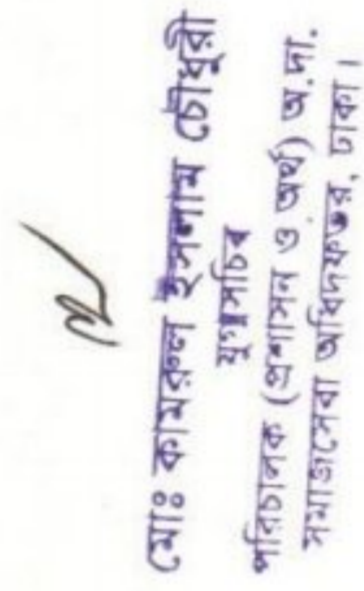 মোঃ কামরুল ইসলাম চৌধুরী
যুগ্মসচিব
পরিচালক (প্রশাসন ও অর্থ) অ.দা.
সমাজসেবা অধিদফতর, ঢাকা।